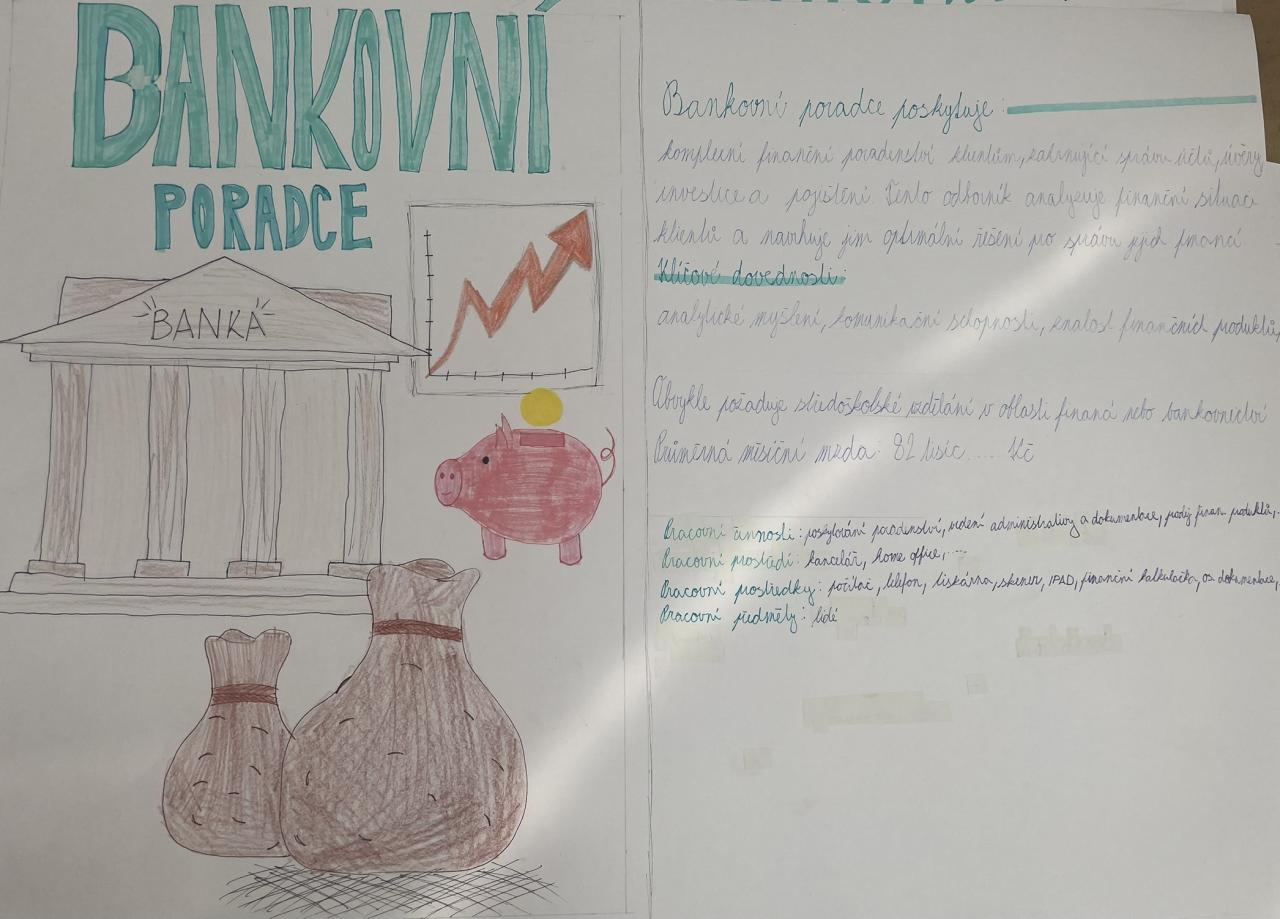 BANKOVNÍ
PORADCE
BANKA
Bankovní poradce poskytuje :
komplexní finanční poradenství klientům, zahrnující správu účtů, úvěry
investice a pojištění. Tento odborník analyzuje finanční situaci
klientů a navrhuje jim optimální řešení pro správu jejich financí
Klíčové dovednosti:
analytické myšlení, komunikační schopnosti, znalost finančních produktů,
Obvykle požaduje středoškolské vzdělání v oblasti financí nebo bankovnictví
Průměrná měsíční mzda: 82 tisíc ..... Kč
Pracovní činnosti : poskytování poradenství, vedení administrativy a dokumentace, prodej finan. produktů, .
Pracovní prostředí: kancelář, home office, ....
Pracovní prostředky: počítač, telefon, tiskárna, skener, IPAD, finanční kalkulačka, os. dokumentace,
Pracovní předměty: lidé